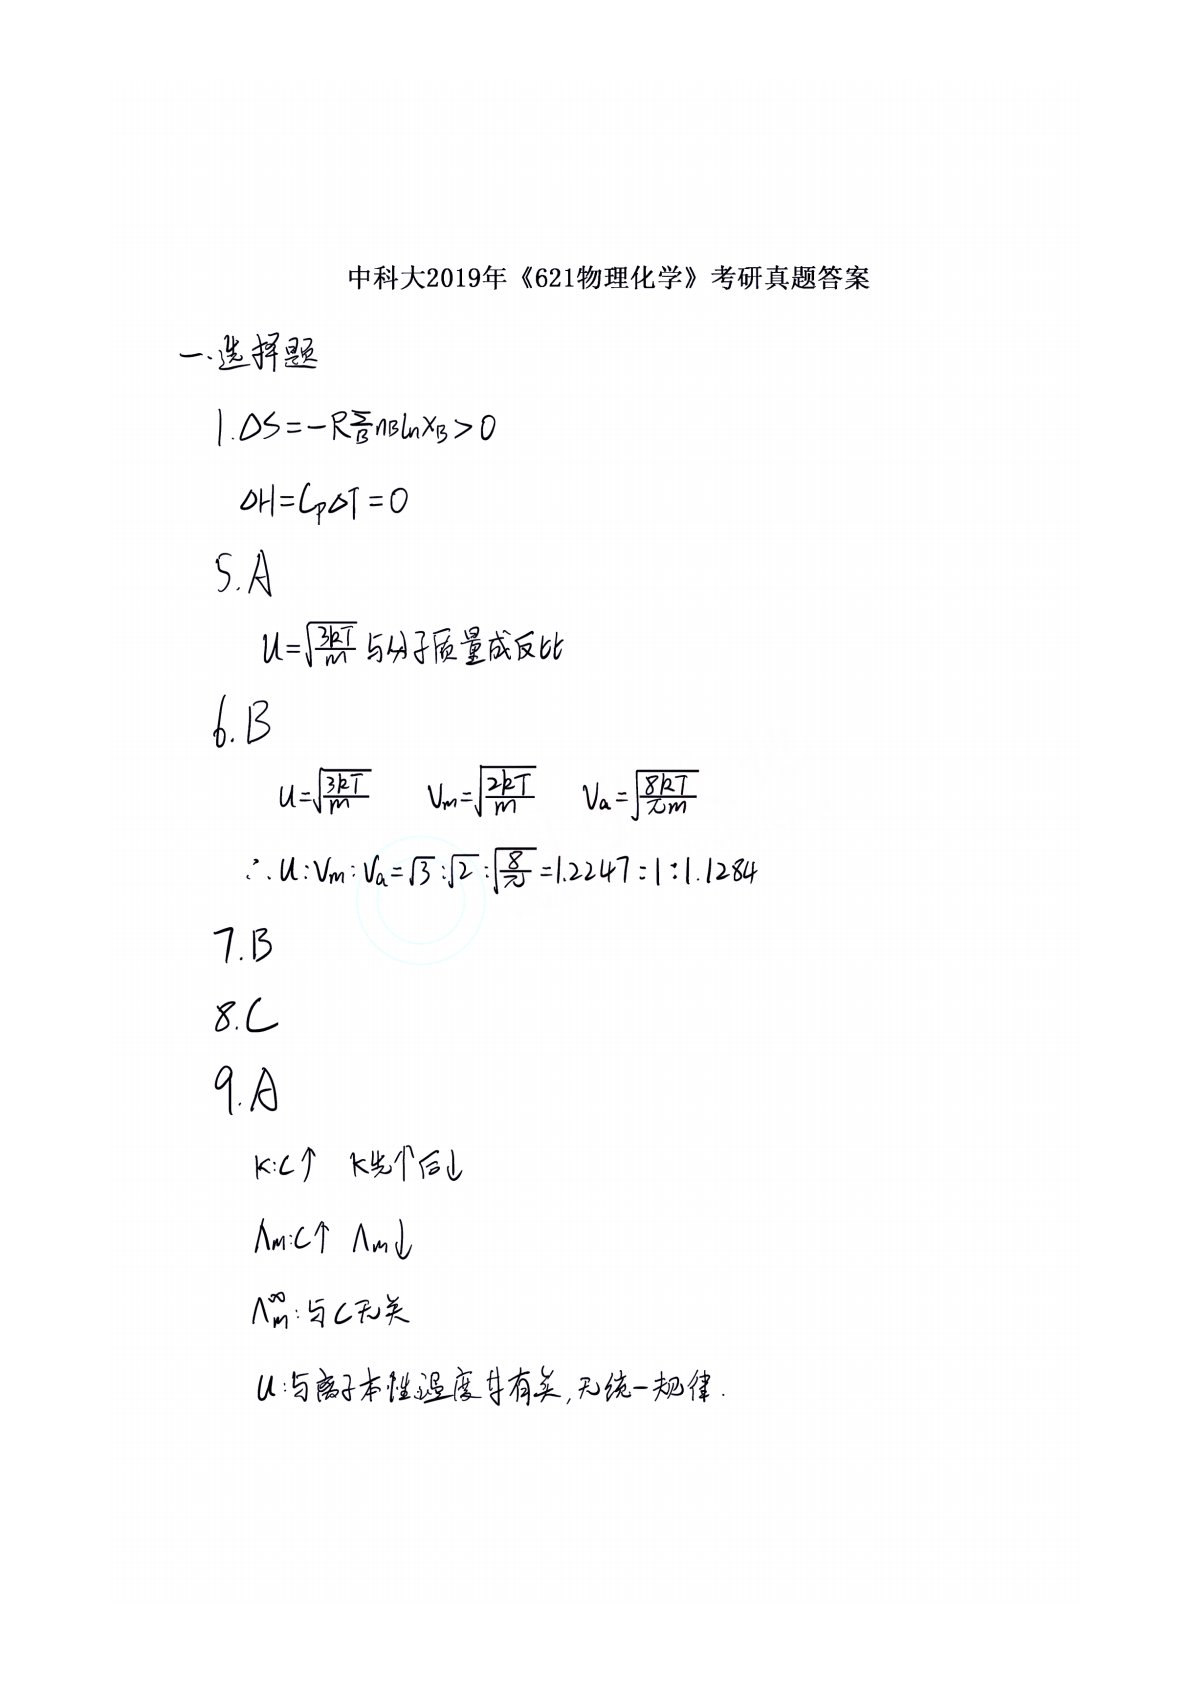 中科大2019年《621物理化学》考研真题答案
一.选择题
1.ΔS=-R∑_B n_B ln x_B>0
ΔH=C_pΔT=0
5.A
u=√(3kT/m) 与分子质量成反比
6.B
u=√(3kT/m) V_m=√(2kT/m) V_a=√(8kT/πm)
∴u:V_m:V_a=√3:√2:√(8/π)=1.2247:1:1.1284
7.B
8.C
9.A
κ:C↑ κ先个后↓
Λm:C↑ Λm↓
Λ_m^∞:与C无关
u:与离子本性温度等有关,无统一规律.